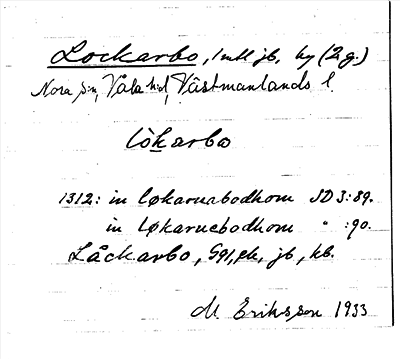 Lockarbo, 1 mtl jb. by (2 g.)
Nora sn, Våla hd, Västmanlands l.
lòkarbo
1312: in løkaruabodhom SD 3:89.
in løkaruebodhom " :90.
Låckarbo, Ggl, jb, kb.
M. Eriksson 1933